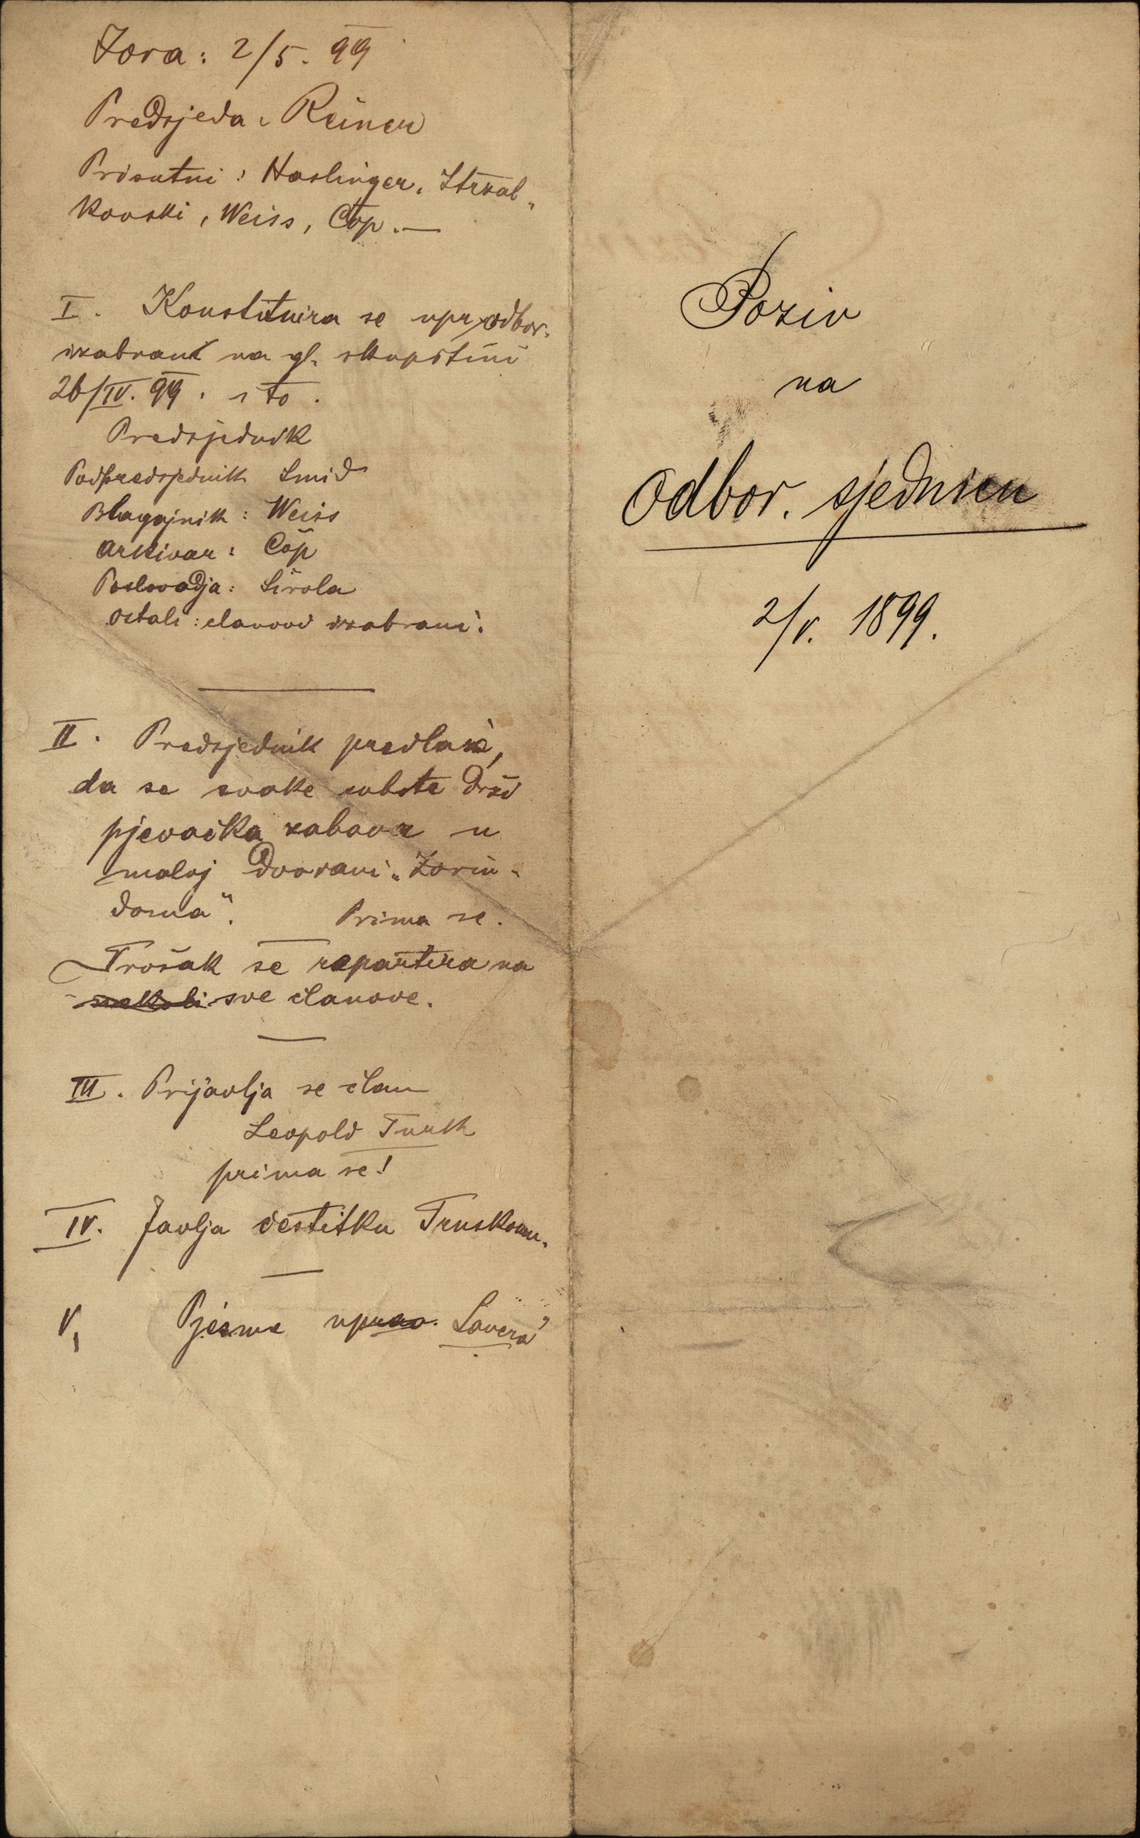 Zora: 2/5. 99
Predsjeda: Reiner
Prisutni: Haslinger, Strzal-
kovski, Weiss, Čop.—
I. Konstituira se upr. odbor.
izabrani na gl. skupštini
26/IV. 99. i to.
Predsjednik
Podpredsjednik Šmid
Blagajnik: Weiss
Arkivar: Čop
Poslovodja: Širola
ostali: članovi izabrani.
II. Predsjednik predlaže,
da se svake subote drži
pjevačka zabava u
maloj dvorani „Zorin-
doma“. Prima se.
Trošak se repartira na
sve članove.
III. Prijavlja se član
Leopold Turk
prima se!
IV. Javlja čestitku
V. Pjesme uprav.
Poziv
na
odbor. sjednicu
2/V. 1899.